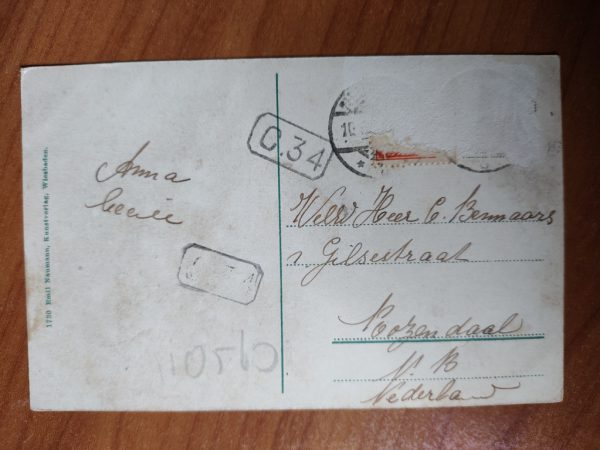 1750 Emil Naumann, Kunstverlag, Wiesbaden.
Anna
C.34
10
WelEd Heer C. Bennaars
Gilsestraat
Rozendaal
N. B
Nederland